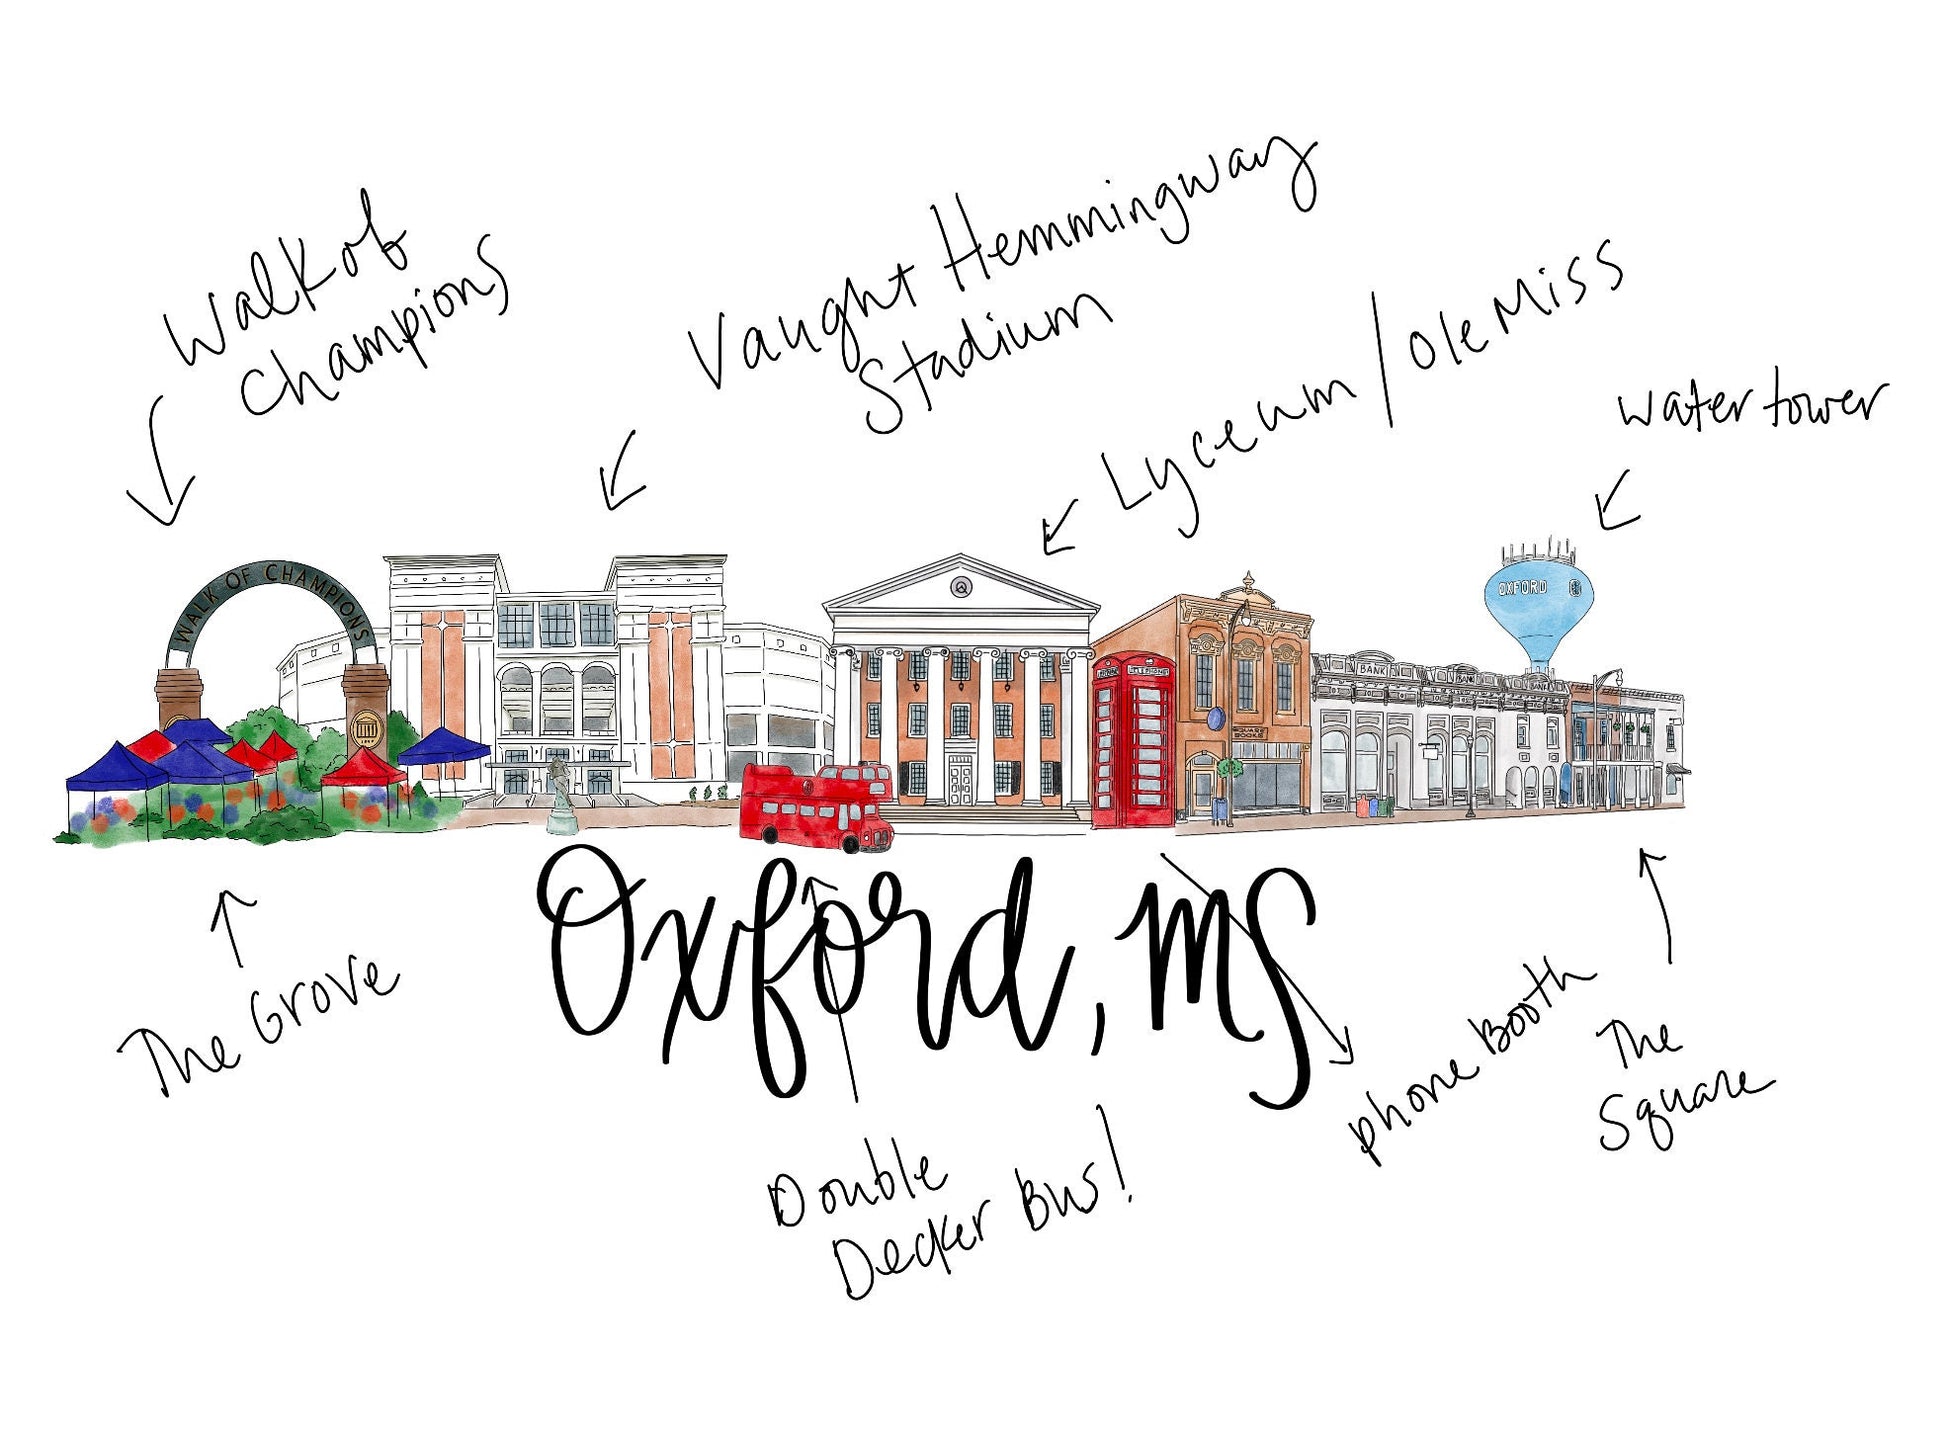 Walk of
Champions
Vaught Hemmingway
Stadium
Lyceum / Ole Miss
Water tower
WALK OF CHAMPIONS
OXFORD
TELEPHONE
BANK
BANK
BANK
SQUARE
BOOKS
1848
Oxford, MS
The Grove
Double
Decker Bus!
phone Booth
The
Square